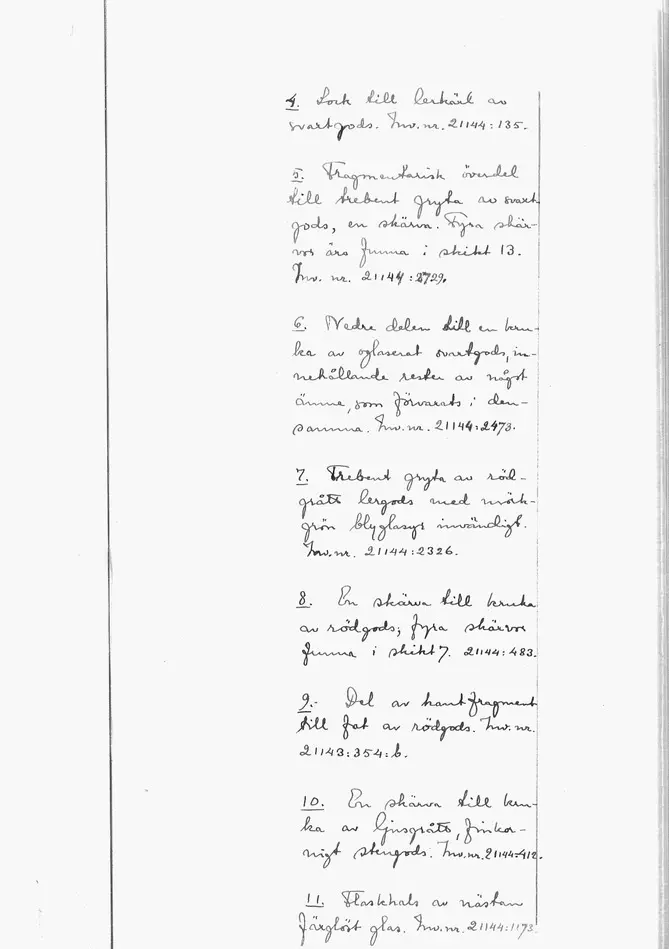 4. Lock till lerkärl av
svartgods. Inv.nr. 21144:135.
5. Fragmentarisk överdel
till trebent gryta av svart
gods, en skärva. Fyra skär-
vor äro funna i skikt 13.
Inv. nr. 21144:2729.
6. Nedre delen till en kru-
ka av oglaserat svartgods, in-
nehållande rester av något
ämne, som förvarats i den-
samma. Inv.nr. 21144:2473.
7. Trebent gryta av röd-
grått lergods med mörk-
grön blyglasyr invändigt.
Inv.nr. 21144:2326.
8. En skärva till kruka
av rödgods; fyra skärvor
funna i skikt 7. 21144:483.
9.- Del av kantfragment
till fat av rödgods. Inv.nr.
21143:354:b.
10. En skärva till kru-
ka av ljusgrått, finkor-
nigt stengods. Inv.nr. 21144:412.
11. Flaskhals av nästan
färglöst glas. Inv.nr. 21144:1173.